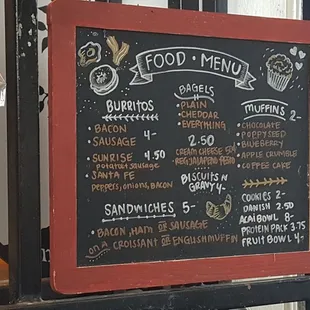 FOOD • MENU
BURRITOS
• BACON
• SAUSAGE 4-
• SUNRISE 4.50
potatoes sausage
• SANTA FE
peppers, onions, BACON
BAGELS
• PLAIN
• CHEDDAR
• EVERYTHING
2.50
CREAM CHEESE 50¢
REG/JALAPEÑO PESTO
BISCUITS N
GRAVY 4-
MUFFINS 2-
• CHOCOLATE
• POPPYSEED
• BLUEBERRY
• APPLE CRUMBLE
• COFFEE CAKE
SANDWICHES 5-
• BACON, HAM OR SAUSAGE
on A CROISSANT OR ENGLISH MUFFIN
COOKIES 2-
DANISH 2.50
ACAI BOWL 8-
PROTEIN PACK 3.75
FRUIT BOWL 4-